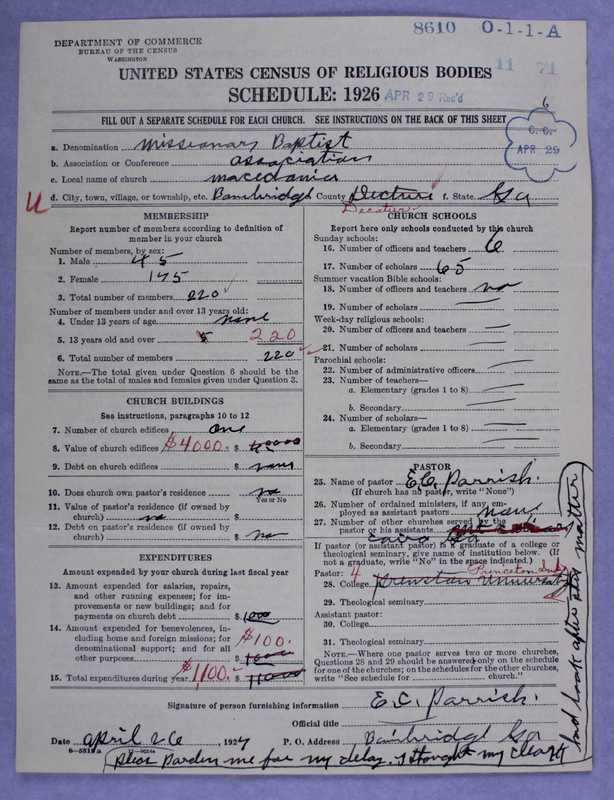 8610 O-1-1-A
11 71
DEPARTMENT OF COMMERCE
BUREAU OF THE CENSUS
WASHINGTON
UNITED STATES CENSUS OF RELIGIOUS BODIES
SCHEDULE: 1926 APR 29 Rec'd
6
FILL OUT A SEPARATE SCHEDULE FOR EACH CHURCH. SEE INSTRUCTIONS ON THE BACK OF THIS SHEET
C. C.
APR 29
a. Denomination Missionary Baptist
b. Association or Conference association
c. Local name of church macedonia
d. City, town, village, or township, etc. Bainbridge County Decture f. State Ga
Decatur
U
MEMBERSHIP
Report number of members according to definition of
member in your church
Number of members, by sex:
1. Male 45
2. Female 175
3. Total number of members 220
Number of members under and over 13 years old:
4. Under 13 years of age none
5. 13 years old and over 220
6. Total number of members 220
NOTE.—The total given under Question 6 should be the
same as the total of males and females given under Question 3.
CHURCH BUILDINGS
See instructions, paragraphs 10 to 12
7. Number of church edifices one
8. Value of church edifices $4000. $
9. Debt on church edifices $ none
10. Does church own pastor's residence no
Yes or No
11. Value of pastor's residence (if owned by
church) no $
12. Debt on pastor's residence (if owned by
church) $ no
EXPENDITURES
Amount expended by your church during last fiscal year
13. Amount expended for salaries, repairs,
and other running expenses; for im-
provements or new buildings; and for
payments on church debt $ 1000
14. Amount expended for benevolences, in-
cluding home and foreign missions; for
denominational support; and for all
other purposes $100. $
15. Total expenditures during year $1,100. $
CHURCH SCHOOLS
Report here only schools conducted by this church
Sunday schools:
16. Number of officers and teachers 6
17. Number of scholars 65
Summer vacation Bible schools:
18. Number of officers and teachers no
19. Number of scholars
Week-day religious schools:
20. Number of officers and teachers
21. Number of scholars
Parochial schools:
22. Number of administrative officers
23. Number of teachers—
a. Elementary (grades 1 to 8)
b. Secondary
24. Number of scholars—
a. Elementary (grades 1 to 8)
b. Secondary
PASTOR
25. Name of pastor E.C. Parrish.
(If church has no pastor, write "None")
26. Number of ordained ministers, if any, em-
ployed as assistant pastors
27. Number of other churches served by the
pastor or his assistant
Cairo Ga
If pastor (or assistant pastor) is a graduate of a college or
theological seminary, give name of institution below. (If
not a graduate, write "No" in the space indicated.)
Pastor: 4
28. College
29. Theological seminary
Assistant pastor:
30. College
31. Theological seminary
NOTE.—Where one pastor serves two or more churches,
Questions 28 and 29 should be answered only on the schedule
for one of the churches; on the schedules for the other churches,
write "See schedule for church."
Signature of person furnishing information E.C. Parrish.
Official title
Date april 26, 1927 P. O. Address Bainbridge Ga
8—5519a
Pleas Parden me for my delay. I thought my cleark
had look after this matter